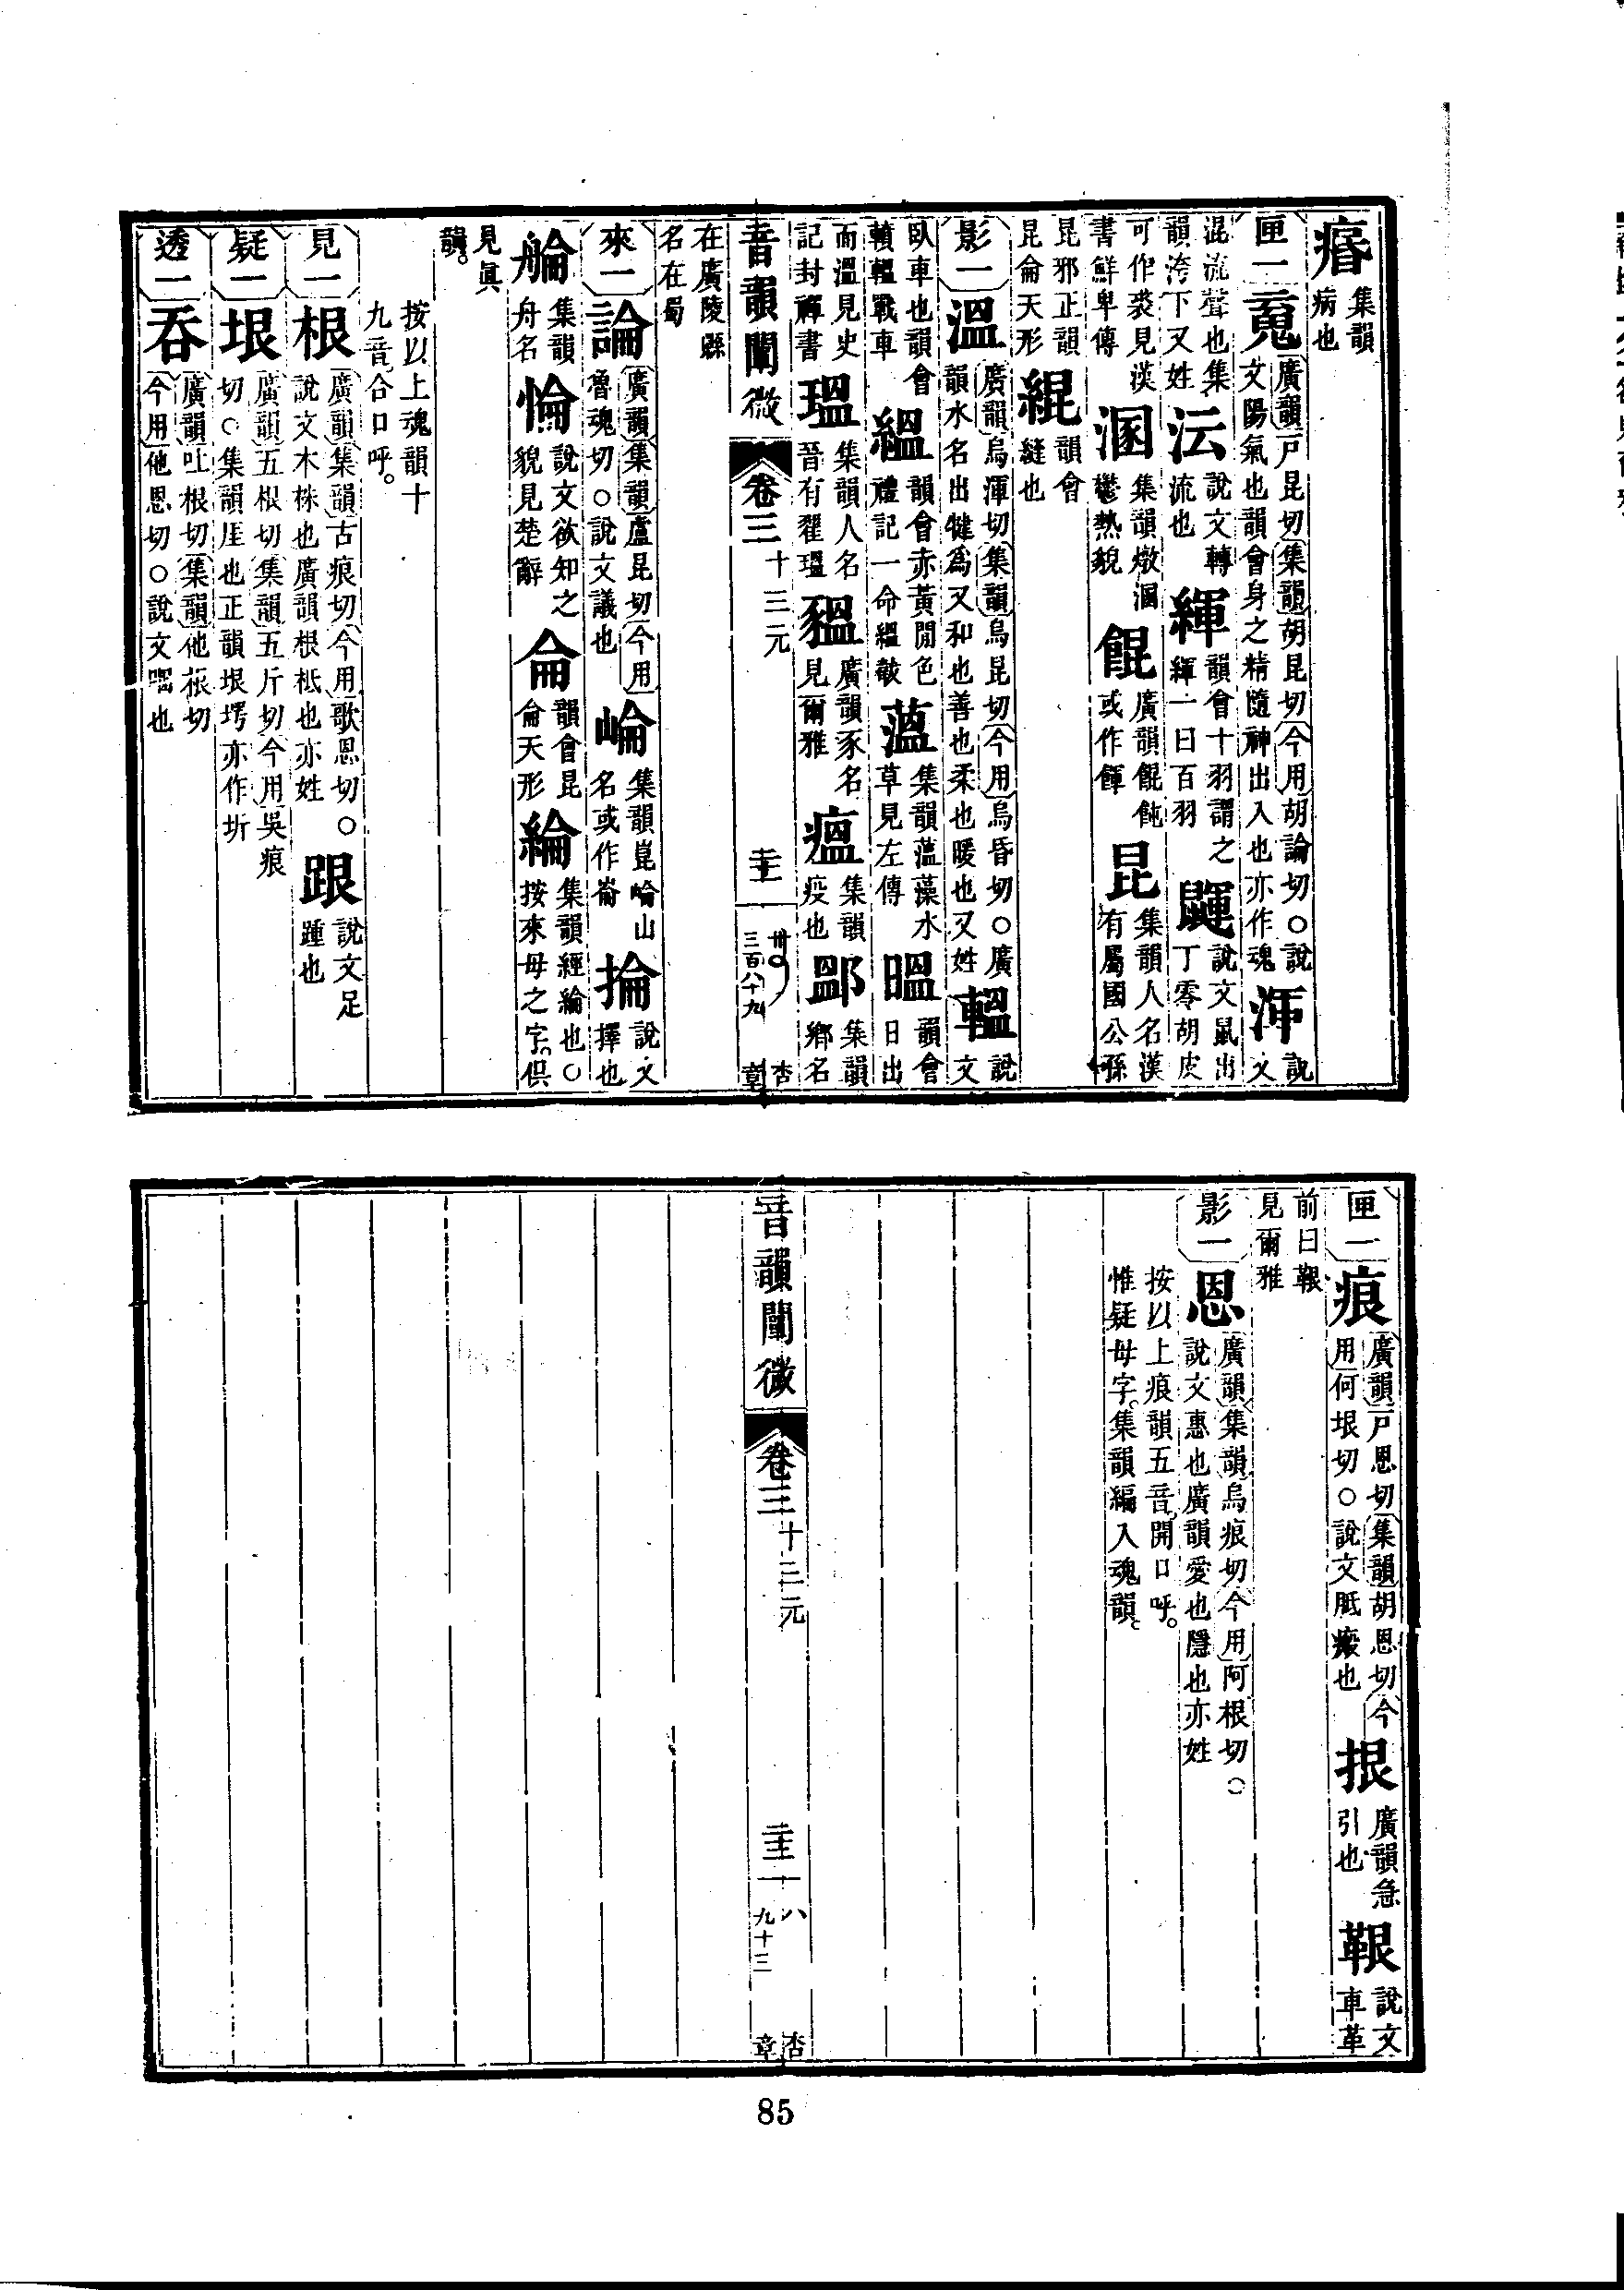 㾽集韻病也
匣一䰟廣韻戸昆切集韻胡昆切今用胡論切○說文陽氣也韻會身之精隨神出入也亦作魂渾說文
混流聲也集韻洿下又姓沄說文轉流也緷韻會十羽謂之緷一曰百羽鼲說文鼠出丁零胡皮
可作裘見漢書鮮卑傳溷集韻燉溷鬱熱貌餛廣韻餛飩或作餫昆集韻人名漢有屬國公孫
昆邪正韻昆侖天形緄韻會縫也
影一溫廣韻烏渾切集韻烏昆切今用烏昏切○廣韻水名出犍為又和也善也柔也暖也又姓轀說文
臥車也韻會轒轀戰車緼韻會赤黃閒色禮記一命緼韍薀集韻薀藻水草見左傳昷韻會日出
而溫見史記封禪書瑥集韻人名晉有翟瑥豱廣韻豕名見爾雅瘟集韻疫也䣺集韻鄉名
音韻闡微 卷三 十三元 三百八十九 杏章
在廣陵縣名在蜀
來一論廣韻集韻盧昆切今用魯魂切○說文議也崘集韻崑崘山名或作崙掄說文擇也
艑集韻舟名惀說文欲知之貌見楚辭侖韻會昆侖天形綸集韻經綸也○按來母之字俱
見眞韻
按以上魂韻十九音合口呼
見一根廣韻集韻古痕切今用歌恩切○說文木株也廣韻根柢也亦姓跟說文足踵也
疑一垠廣韻五根切集韻五斤切今用吳痕切○集韻厓也正韻垠堮亦作圻
透一吞廣韻吐根切集韻他根切今用他恩切○說文咽也
匣一痕廣韻戸恩切集韻胡恩切今用何垠切○說文胝瘢也拫廣韻急引也鞎說文車革
前曰鞎見爾雅
影一恩廣韻集韻烏痕切今用阿根切○說文惠也廣韻愛也隱也亦姓
按以上痕韻五音開口呼惟疑母字集韻編入魂韻
音韻闡微 卷三 十三元 八 九十三 杏章
85